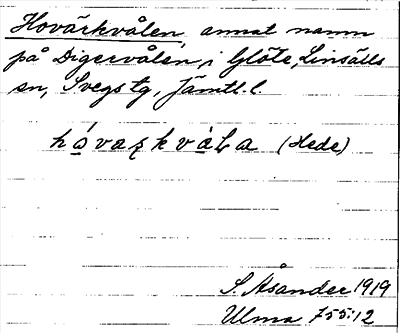 Hovärkvålen, annat namn
på Digervålen, i Glöte, Linsälls
sn, Svegs tg, Jämtl. l.
hóvaʀkvàLa (Hede)
S. Åsander 1919
Ulma 755:12